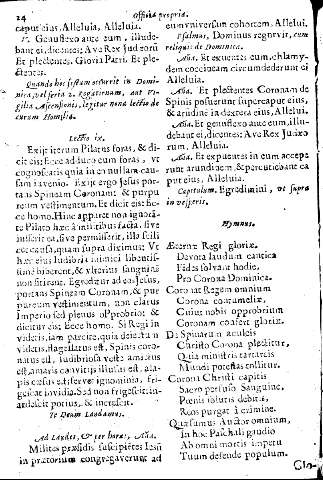 24 Officia propria.
caput eius, Alleluia, Alleluia.
℣. Genuflexo ante eum, illude-
bant ei, dicentes: Ave Rex Judæorū
Et plectentes. Gloria Patri. Et ple-
ctentes.
Quando hoc festum occurrit in Domi-
nica, vel feria 2. Rogationum, aut Vi-
gilia Ascensionis, legitur nona lectio de
earum Homilia.
Lectio ix.
Exijt iterum Pilatus foras, & di-
cit eis: Ecce adduco eum foras, ut
cognoscatis quia in eo nullam cau-
sam invenio. Exijt ergo Jesus por-
tans Spineam Coronam: & purpu-
reum vestimentum. Et dicit eis: Ec-
ce homo. Hinc apparet non ignorā-
te Pilato hæc à militibus facta, sive
jusserit ea, sive permiserit, illa scilicet
causa, quam supra diximus: Ut
hæc eius ludibria inimici libentis-
simè biberent, & ulterius sanguinē
non sitirent. Egreditur ad eos Jesus,
portans Spineam Coronam, & pur-
pureum vestimentum, non clarus
Imperio sed plenus opprobrio: &
dicitur eis: Ecce homo. Si Regi in
videtis, iam parcite, quia deiectum
videtis, flagellatus est, Spinis coro-
natus est, ludibriosa veste amictus
est, amaris convitijs illusus est, ala-
pis cæsus est: fervet ignominia, fri-
gescat invidia. Sed non frigescit: in-
ardescit potius, & increscit.
Te Deum Laudamus.
Ad Laudes, & per horas, Aña.
Milites præsidis suscipiētes Iesū
in prætorium congregaverunt ad
eum universam cohortem. Alleluj.
Psalmi, Dominus regnavit, cum
reliquis de Dominica.
Aña. Et exuentes eum, chlamy-
dem coccineam circumdederunt ei
Alleluia.
Aña. Et plectentes Coronam de
Spinis posuerunt super caput eius,
& arundinē in dextera eius, Alleluj.
Aña. Et genuflexo ante eum, illu-
debant ei, dicentes: Ave Rex Judæo
rum, Alleluia.
Aña. Et expuentes in eum accepe
runt arundinem, & percutiebant ca
put eius, Alleluia.
Capitulum. Egredimini, ut supra
in vesperis.
Hymnus.
Exeunt Regi gloriæ,
Devota laudum cantica
Fides solvat hodie,
Pro Corona Dominica.
Coronat Regem omnium
Corona contumeliæ,
Cuius nobis opprobrium
Coronam confert gloriæ.
De Spinarum aculeis
Christo Corona plectitur,
Qua ministris tartareis
Mundi potestas tollitur.
Corona Christi capitis
Sacro perfuso Sanguine,
Pœnis solutis debitis,
Reos purgat à crimine.
Quæsumus Auctor omnium,
In hoc Paschali gaudio
Ab omni mortis impetu
Tuum defende populum.
Glo-